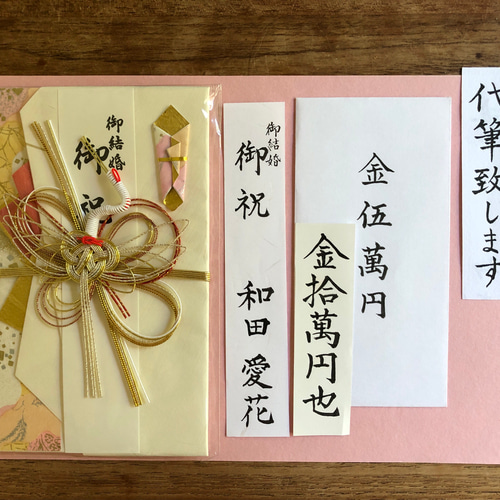 御結婚
御祝
御結婚
御祝
和田愛花
金拾萬円也
金伍萬円
代筆致します